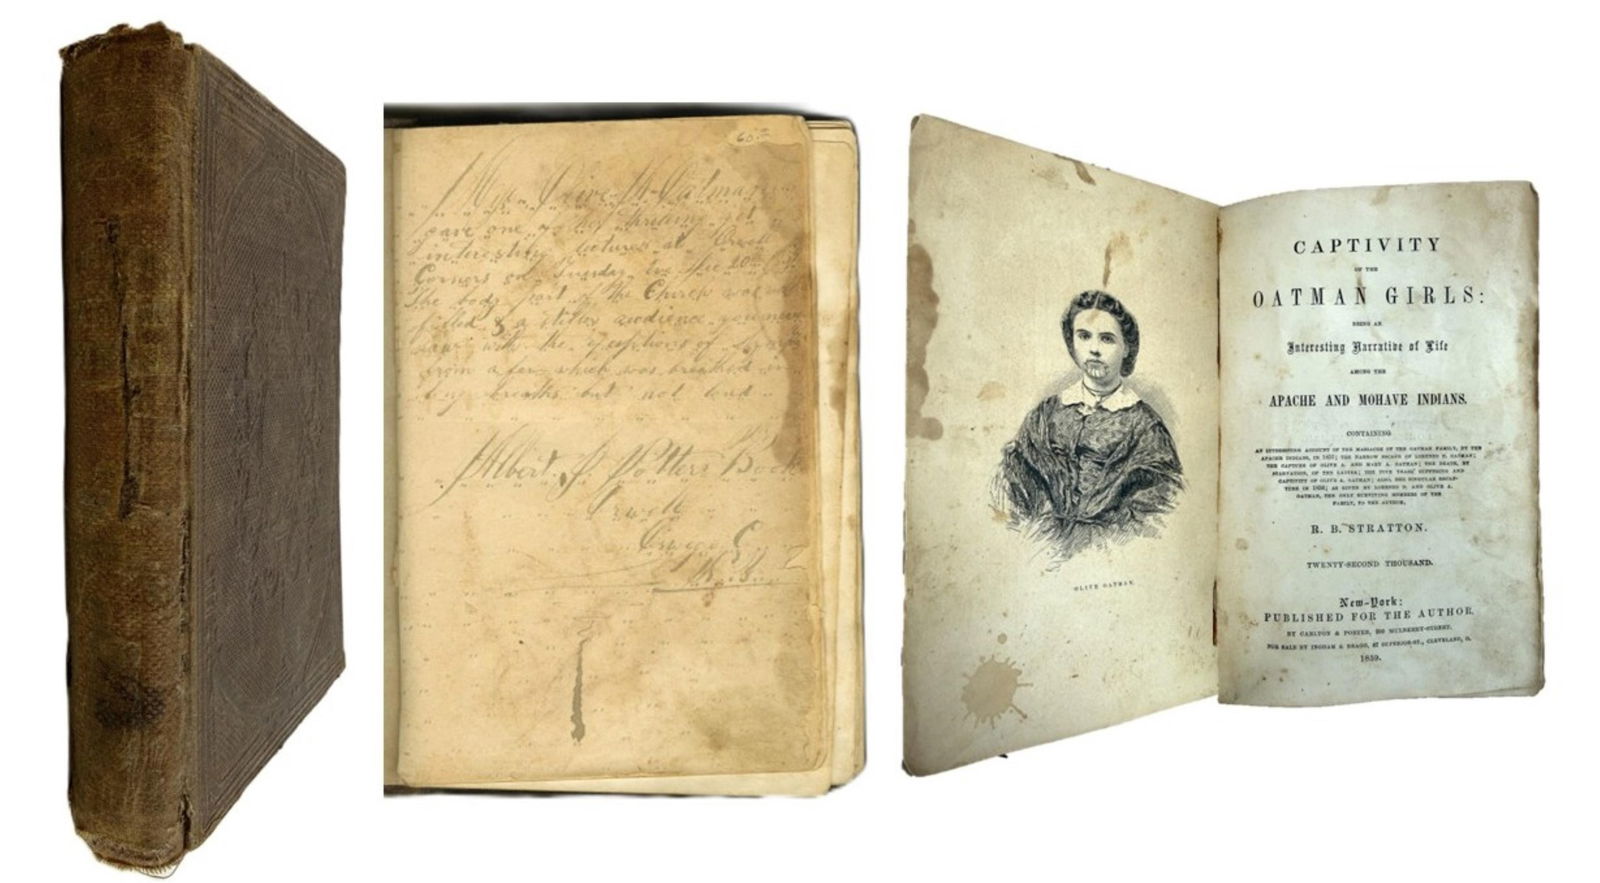 Miss Olive A. Oatman
gave one of her thrilling yet
interesting lectures at Orwell
Corners on Sunday Eve Dec 20th
The body part of the Church was
filled & a stiller audience you never
saw with the exceptions of
from a few which was breathed in
long breaths but not loud
Albert J. Potters Book
Orwell
Oswego
N. Y.
CAPTIVITY
OF THE
OATMAN GIRLS:
BEING AN
Interesting Narrative of Life
AMONG THE
APACHE AND MOHAVE INDIANS.
CONTAINING
AN INTERESTING ACCOUNT OF THE MASSACRE OF THE OATMAN FAMILY, BY THE
APACHE INDIANS, IN 1851; THE NARROW ESCAPE OF LORENZO D. OATMAN;
THE CAPTURE OF OLIVE A. AND MARY A. OATMAN; THE DEATH, BY
STARVATION, OF THE LATTER; THE FIVE YEARS' SUFFERING AND
CAPTIVITY OF OLIVE A. OATMAN; ALSO, HER SINGULAR RECAP-
TURE IN 1856; AS GIVEN BY LORENZO D. AND OLIVE A.
OATMAN, THE ONLY SURVIVING MEMBERS OF THE
FAMILY, TO THE AUTHOR,
R. B. STRATTON.
TWENTY-SECOND THOUSAND.
New-York:
PUBLISHED FOR THE AUTHOR,
BY CARLTON & PORTER, 200 MULBERRY-STREET.
FOR SALE BY INGHAM & BRAGG, 67 SUPERIOR-ST., CLEVELAND, O.
1859.
OLIVE OATMAN.